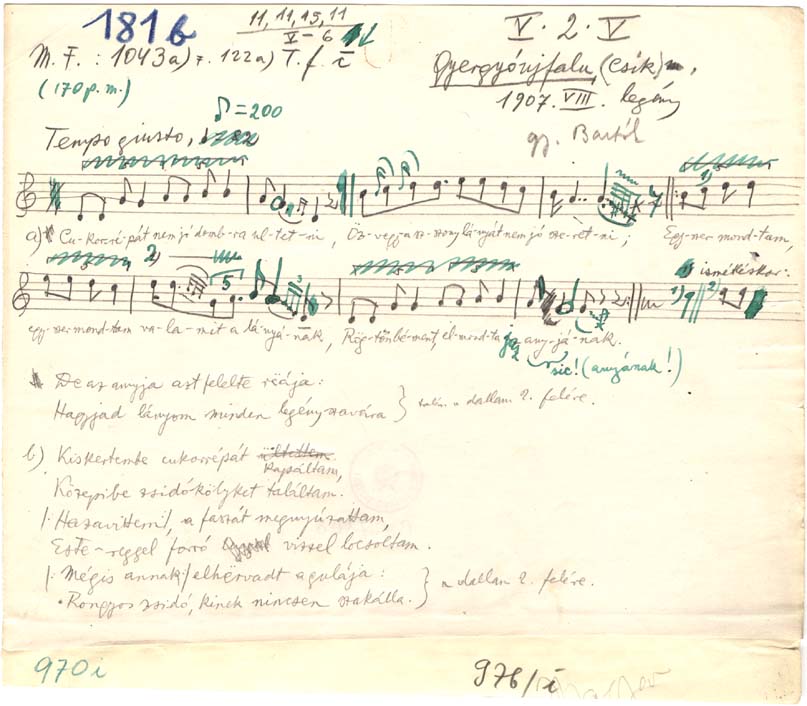 1816
11, 11, 15, 11
V – 6
V. 2. V
M. F. : 1043a) z. 122a) T. f. i
Gyergyóujfalu (Csík)
(170 p. m.)
1907. VIII. legény
♪=200
gy. Bartók
Tempo giusto,
a) Cu-korré-pát nem jó domb-ra ül-tet-ni, Öz-vegy a-sz-szony lá-nyát nem jó sze-ret-ni; Egy-szer mond-tam,
2) 5 ismétléskor: 1) 2)
egy-szer mond-tam va-la-mit a lá-nyá-nak, Rög-tön bé-ment, el-mond-ta az any-já-nak.
sic! (anyának!)
De az anyja azt felelte reája:
Hagyjad lányom minden legény szavára } a dallam 2. felére.
b) Kiskertembe cukorrépát ültettem
kapáltam,
Közepibe zsidókölyket találtam.
|: Hazavittem :|, a faszát megnyúzattam,
Este-reggel forró vizzel locsoltam.
|: Mégis annak :| elhërvadt a gulája :
Rongyos zsidó, kinek nincsen szakálla. } a dallam 2. felére.
970i
976/i